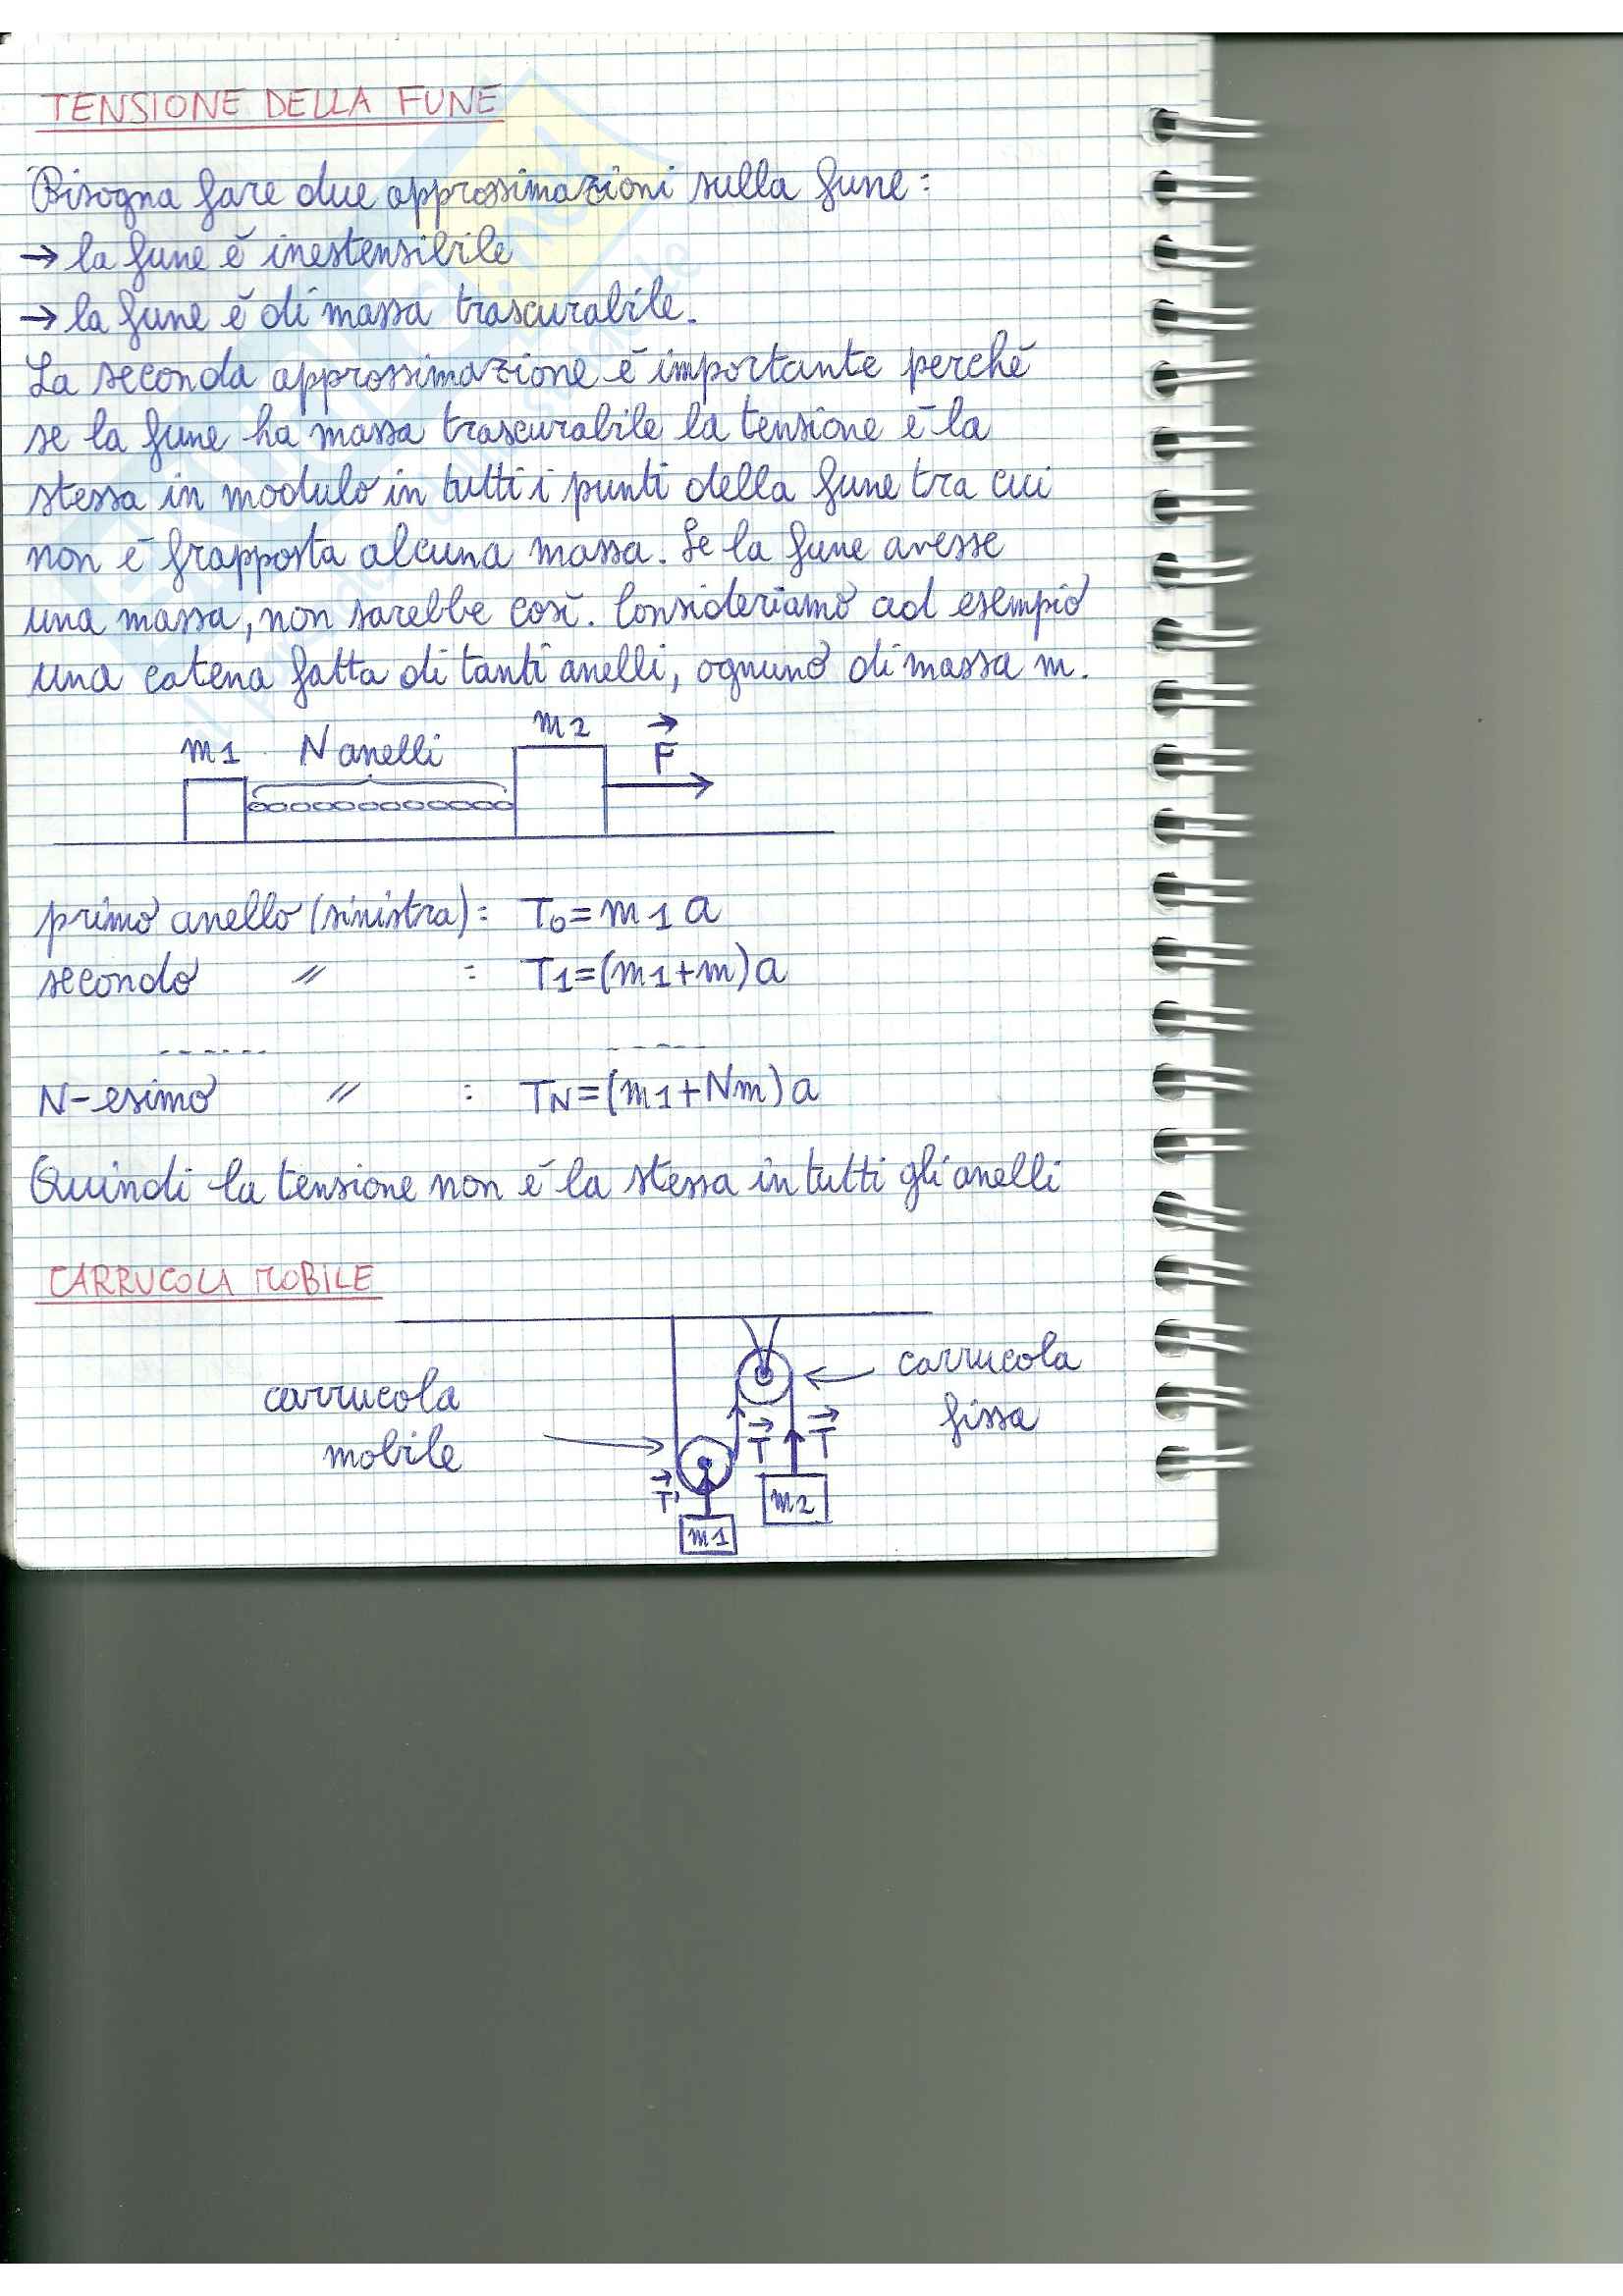 TENSIONE DELLA FUNE
Bisogna fare due approssimazioni sulla fune:
→ la fune è inestensibile
→ la fune è di massa trascurabile.
La seconda approssimazione è importante perché
se la fune ha massa trascurabile la tensione è la
stessa in modulo in tutti i punti della fune tra cui
non è frapposta alcuna massa. Se la fune avesse
una massa, non sarebbe così. Consideriamo ad esempio
una catena fatta di tanti anelli, ognuno di massa m.
m1 N anelli m2 F
primo anello (sinistra): T0=m1a
secondo " : T1=(m1+m)a
------ -----
N-esimo " : TN=(m1+Nm)a
Quindi la tensione non è la stessa in tutti gli anelli
CARRUCOLA MOBILE
carrucola
fissa
carrucola
mobile
T T
T'
m2
m1